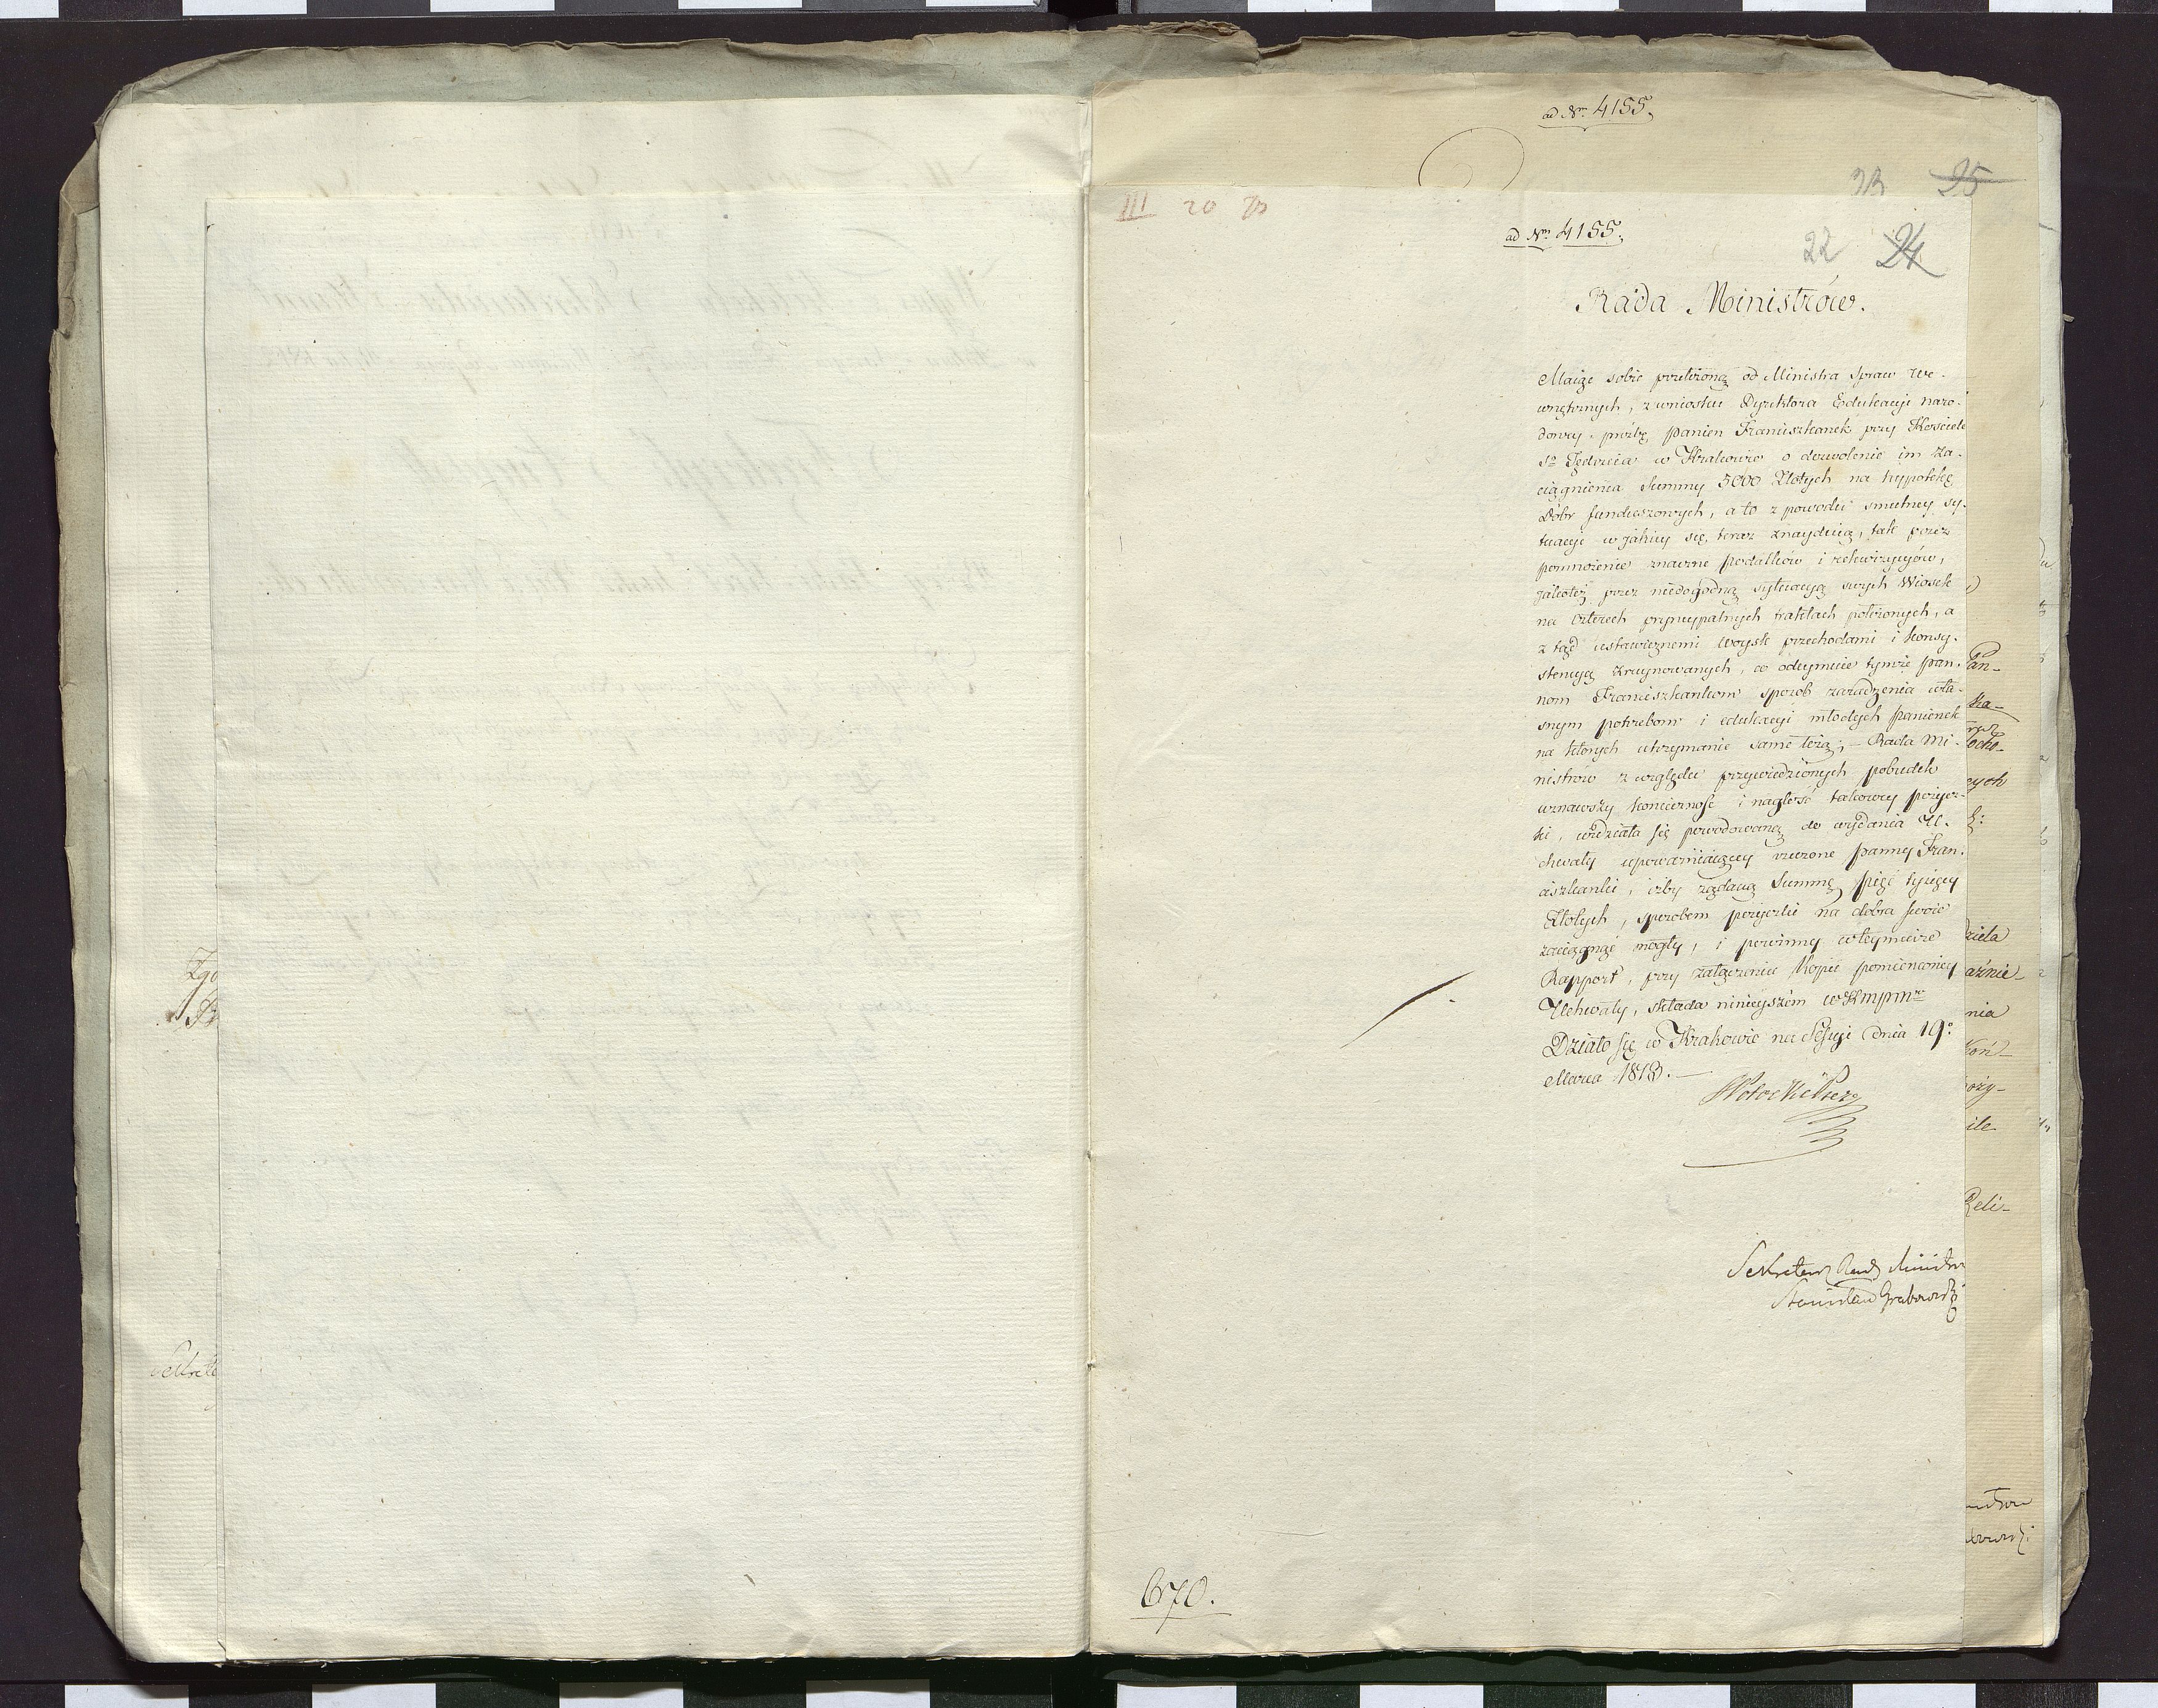 ad Nrm 4155.
23 25
III 20 73
ad Nrm 4155.
22 24
Rada Ministrów.
Maiąc sobie przełożoną od Ministra Spraw We-
wnętrznych, z wniosku Dyrektora Edukacyi naro-
dowey, prożbę Panien Franciszkanek przy Kościele
Sgo Jędrzeia w Krakowie o dozwolenie im za-
ciągnienia Summy 5000 Złotych na hypotekę
Dóbr funduszowych, a to z powodu smutney sy-
tuacyi w jakiey się teraz znayduią, tak przez
pomnożenie znaczne podatków i rekwizycyów,
jakoteż przez niedogodną sytuacyą swych Wiosek
na czterech pryncypalnych traktach położonych, a
z tąd ustawicznemi woysk przechodami i konsy-
stencyą zruynowanych, co odeymuie tymże Pan-
nom Franciszkankom sposob zaradzenia wła-
snym potrzebom i edukacyi młodych panienek
na których utrzymanie same łożą; – Rada Mi-
nistrów z względu przywiedzionych pobudek
uznawszy konieczność i nagłość takowey pożycz-
ki, widziała się powodowaną do wydania U-
chwały upoważniaiącey rzeczone panny Fran-
ciszkanki, iżby żądaną Summę pięć tysięcy
Złotych, sposobem pożyczki na dobra swoie
zaciągnąć mogły, i powinny w teymierze
Rapport, przy załączeniu Kopii pomienioney
Uchwały, składa ninieyszém
Działo się w Krakowie na Sessyi dnia 19o
Marca 1813. —
Sekretarz Rady Ministrow
Stanisław Grabowski
670.
Pan-
ka-
ocho-
cych
dziela
ażnie-
nia
Koń-
oży-
ile
Reli-
Zgo
Sekreta